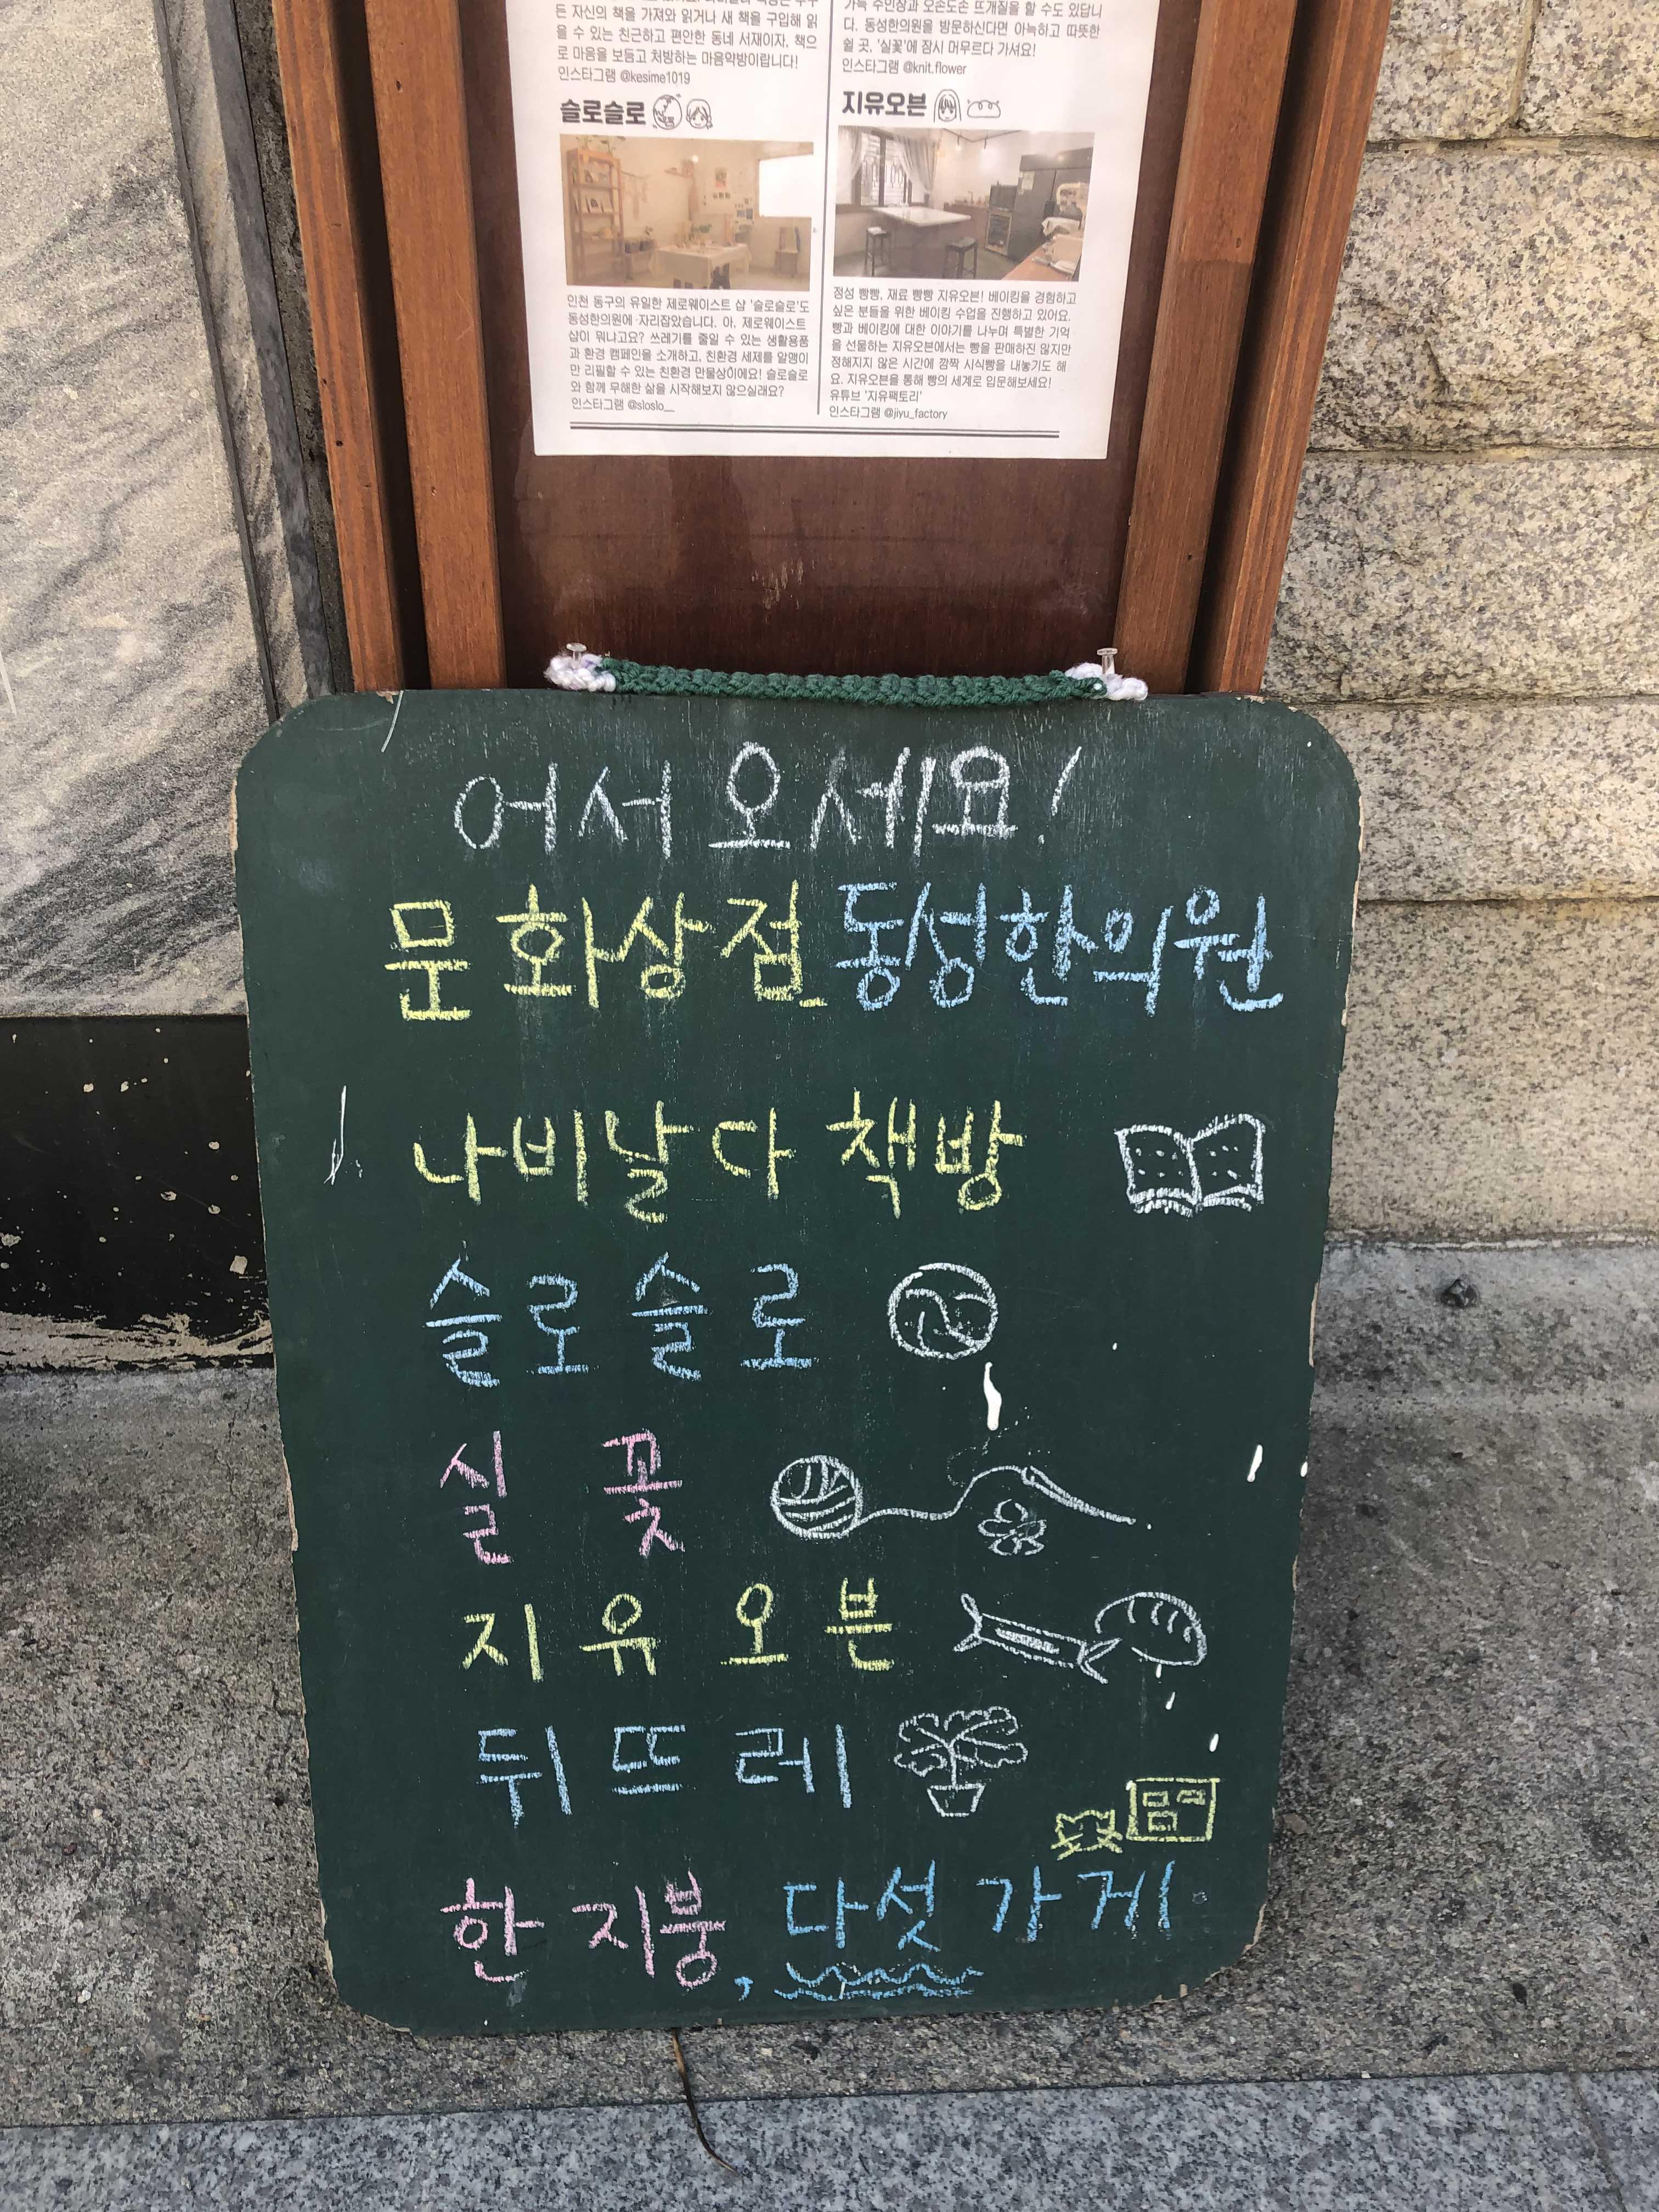 든 자신의 책을 가져와 읽거나 새 책을 구입해 읽
을 수 있는 친근하고 편안한 동네 서재이자, 책으
로 마음을 보듬고 처방하는 마음약방이랍니다!
인스타그램 @kesime1019
슬로슬로
인천 동구의 유일한 제로웨이스트 샵 '슬로슬로'도
동성한의원에 자리잡았습니다. 아, 제로웨이스트
샵이 뭐냐고요? 쓰레기를 줄일 수 있는 생활용품
과 환경 캠페인을 소개하고, 친환경 세제를 알맹이
만 리필할 수 있는 친환경 만물상이에요! 슬로슬로
와 함께 무해한 삶을 시작해보지 않으실래요?
인스타그램 @sloslo__
가득 주인장과 오손도손 뜨개질을 할 수도 있답니
다. 동성한의원을 방문하신다면 아늑하고 따뜻한
쉴 곳, '실꽃'에 잠시 머무르다 가셔요!
인스타그램 @knit.flower
지유오븐
정성 빵빵, 재료 빵빵 지유오븐! 베이킹을 경험하고
싶은 분들을 위한 베이킹 수업을 진행하고 있어요.
빵과 베이킹에 대한 이야기를 나누며 특별한 기억
을 선물하는 지유오븐에서는 빵을 판매하진 않지만
정해지지 않은 시간에 깜짝 시식빵을 내놓기도 해
요. 지유오븐을 통해 빵의 세계로 입문해보세요!
유튜브 '지유팩토리'
인스타그램 @jiyu_factory
어서 오세요!
문화상점 동성한의원
나비날다 책방
슬로슬로
실 꽃
지유 오븐
뒤뜨레
한 지붕, 다섯 가게